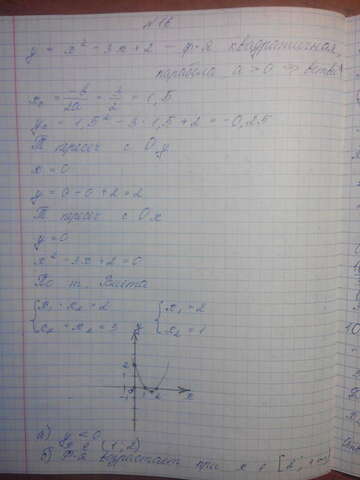 № 16
y = x² - 3x + 2 - ф-я квадратичная,
парабола a > 0 => ветви
x₀ = -b/2a = 3/2 = 1,5
y₀ = 1,5² - 3 · 1,5 + 2 = -0,25
Т пересеч с Oy
x = 0
y = 0 - 0 + 2 = 2
Т пересеч с Ox
y = 0
x² - 3x + 2 = 0
По т. Виета
{x₁ · x₂ = 2 {x₁ = 2
{x₁ + x₂ = 3 {x₂ = 1
y
2
1
-1 1 2 x
а) y < 0
(1; 2)
б) Ф-я возрастает при x ∈ [2;